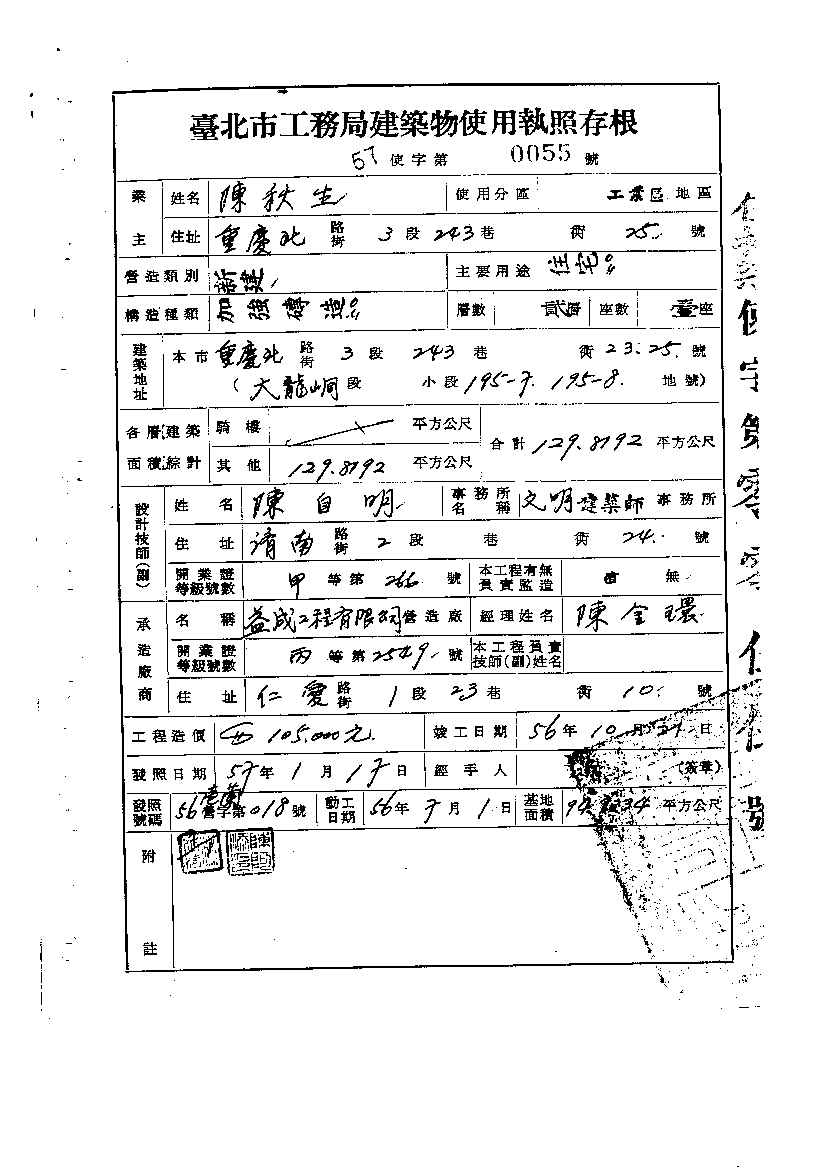 臺北市工務局建築物使用執照存根
57使字第 0055 號
業主 姓名 陳秋生 使用分區 工業區地區
住址 重慶北路街 3段243巷 衖 25 號
營造類別 新建 主要用途 住宅
構造種類 加強磚造 層數 貳層 座數 壹座
建築地址 本市重慶北路街 3段 243巷 衖23.25.號
(大龍峒段 小段195-7. 195-8. 地號)
各層建築面積綜計 騎樓 平方公尺 合計129.8792平方公尺
其他 129.8792 平方公尺
設計技師(副) 姓名 陳自明 事務所名稱 文明建築師事務所
住址 濟南路街 2段 巷 衖 24. 號
開業證等級號數 甲等第266號 本工程有無負責監造 無
承造廠商 名稱 益成工程有限公司營造廠 經理姓名 陳金環
開業證等級號數 丙等第2549號 本工程負責技師(副)姓名
住址 仁愛路街 1段23巷 衖 10. 號
工程造價 105,000元. 竣工日期 56年10月 日
發照日期 57年1月17日 經手人 (簽章)
發照號碼 56 營字第018號 動工日期 56年7月1日 基地面積 平方公尺
附註